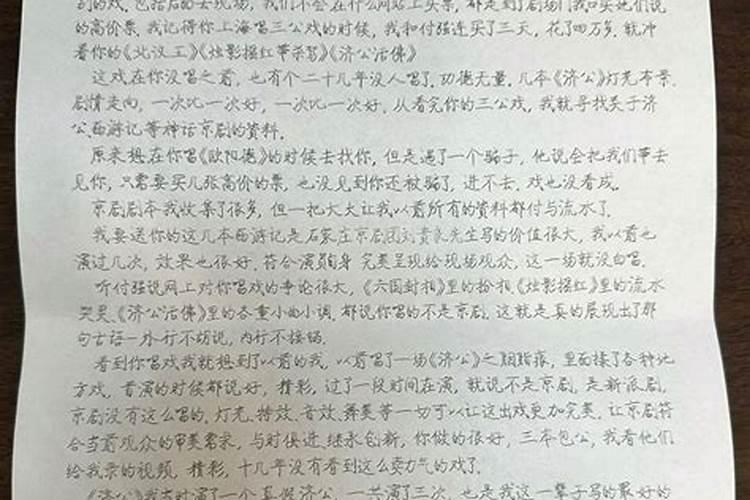 别的戏,包括后面去现场,我们不会在什么网站上买票,都是到了剧场门口买她们说
的高价票.我记得你上海唱三公戏的时候,我和付强连买了三天,花了四万多,就冲
看你的《北汉王》《烛影摇红带杀驾》《济公活佛》
这戏在你没唱之前,也有个二十几年没人唱了.功德无量.几本《济公》灯光布景.
剧情走向,一次比一次好,一次比一次好.从看完你的三公戏,我就寻找关于济
公.西游记等神话京剧的资料.
原来想在你唱《欧阳德》的时候去找你,但是遇了一个骗子,他说会把我们带去
见你,只需要买几张高价的票,也没见到你还被骗了,进不去.戏也没看成.
京剧剧本我收集了很多,但一把大火让我以前所有的资料都付与流水了.
我要送你的这几本西游记是石家庄京剧团刘贵先生写的价值很大,我以前也
演过几次,效果也很好.符合演员自身 完美呈现给现场观众,这一场就没白唱.
听付强说网上对你唱戏的争论很大,《六国封相》里的扮相《烛影摇红》里的流水
哭灵.《济公活佛》里的各重小曲小调.都说你唱的不是京剧.这就是真的展现出了那
句古语一外行不胡说,内行不接锅.
看到你唱戏我就想到了以前的我,以前唱了一场《济公》之胭脂痕,里面揉了各种地
方戏,首演的时候都说好,精彩,过了一段时间在演,就说不是京剧.是新派剧,
京剧没有这么唱的.灯光.特效.音效.舞美等一切可以让这出戏更加完美.让京剧符
合当前观众的审美需求,与时俱进.继承创新,你做的很好,三本包公,我看他们
给我录的视频,精彩,十几年没有看到这么卖力气的戏了.
《济公》我去时演了一个真假济公,一共演了三次,也是我这一辈子写的最好的